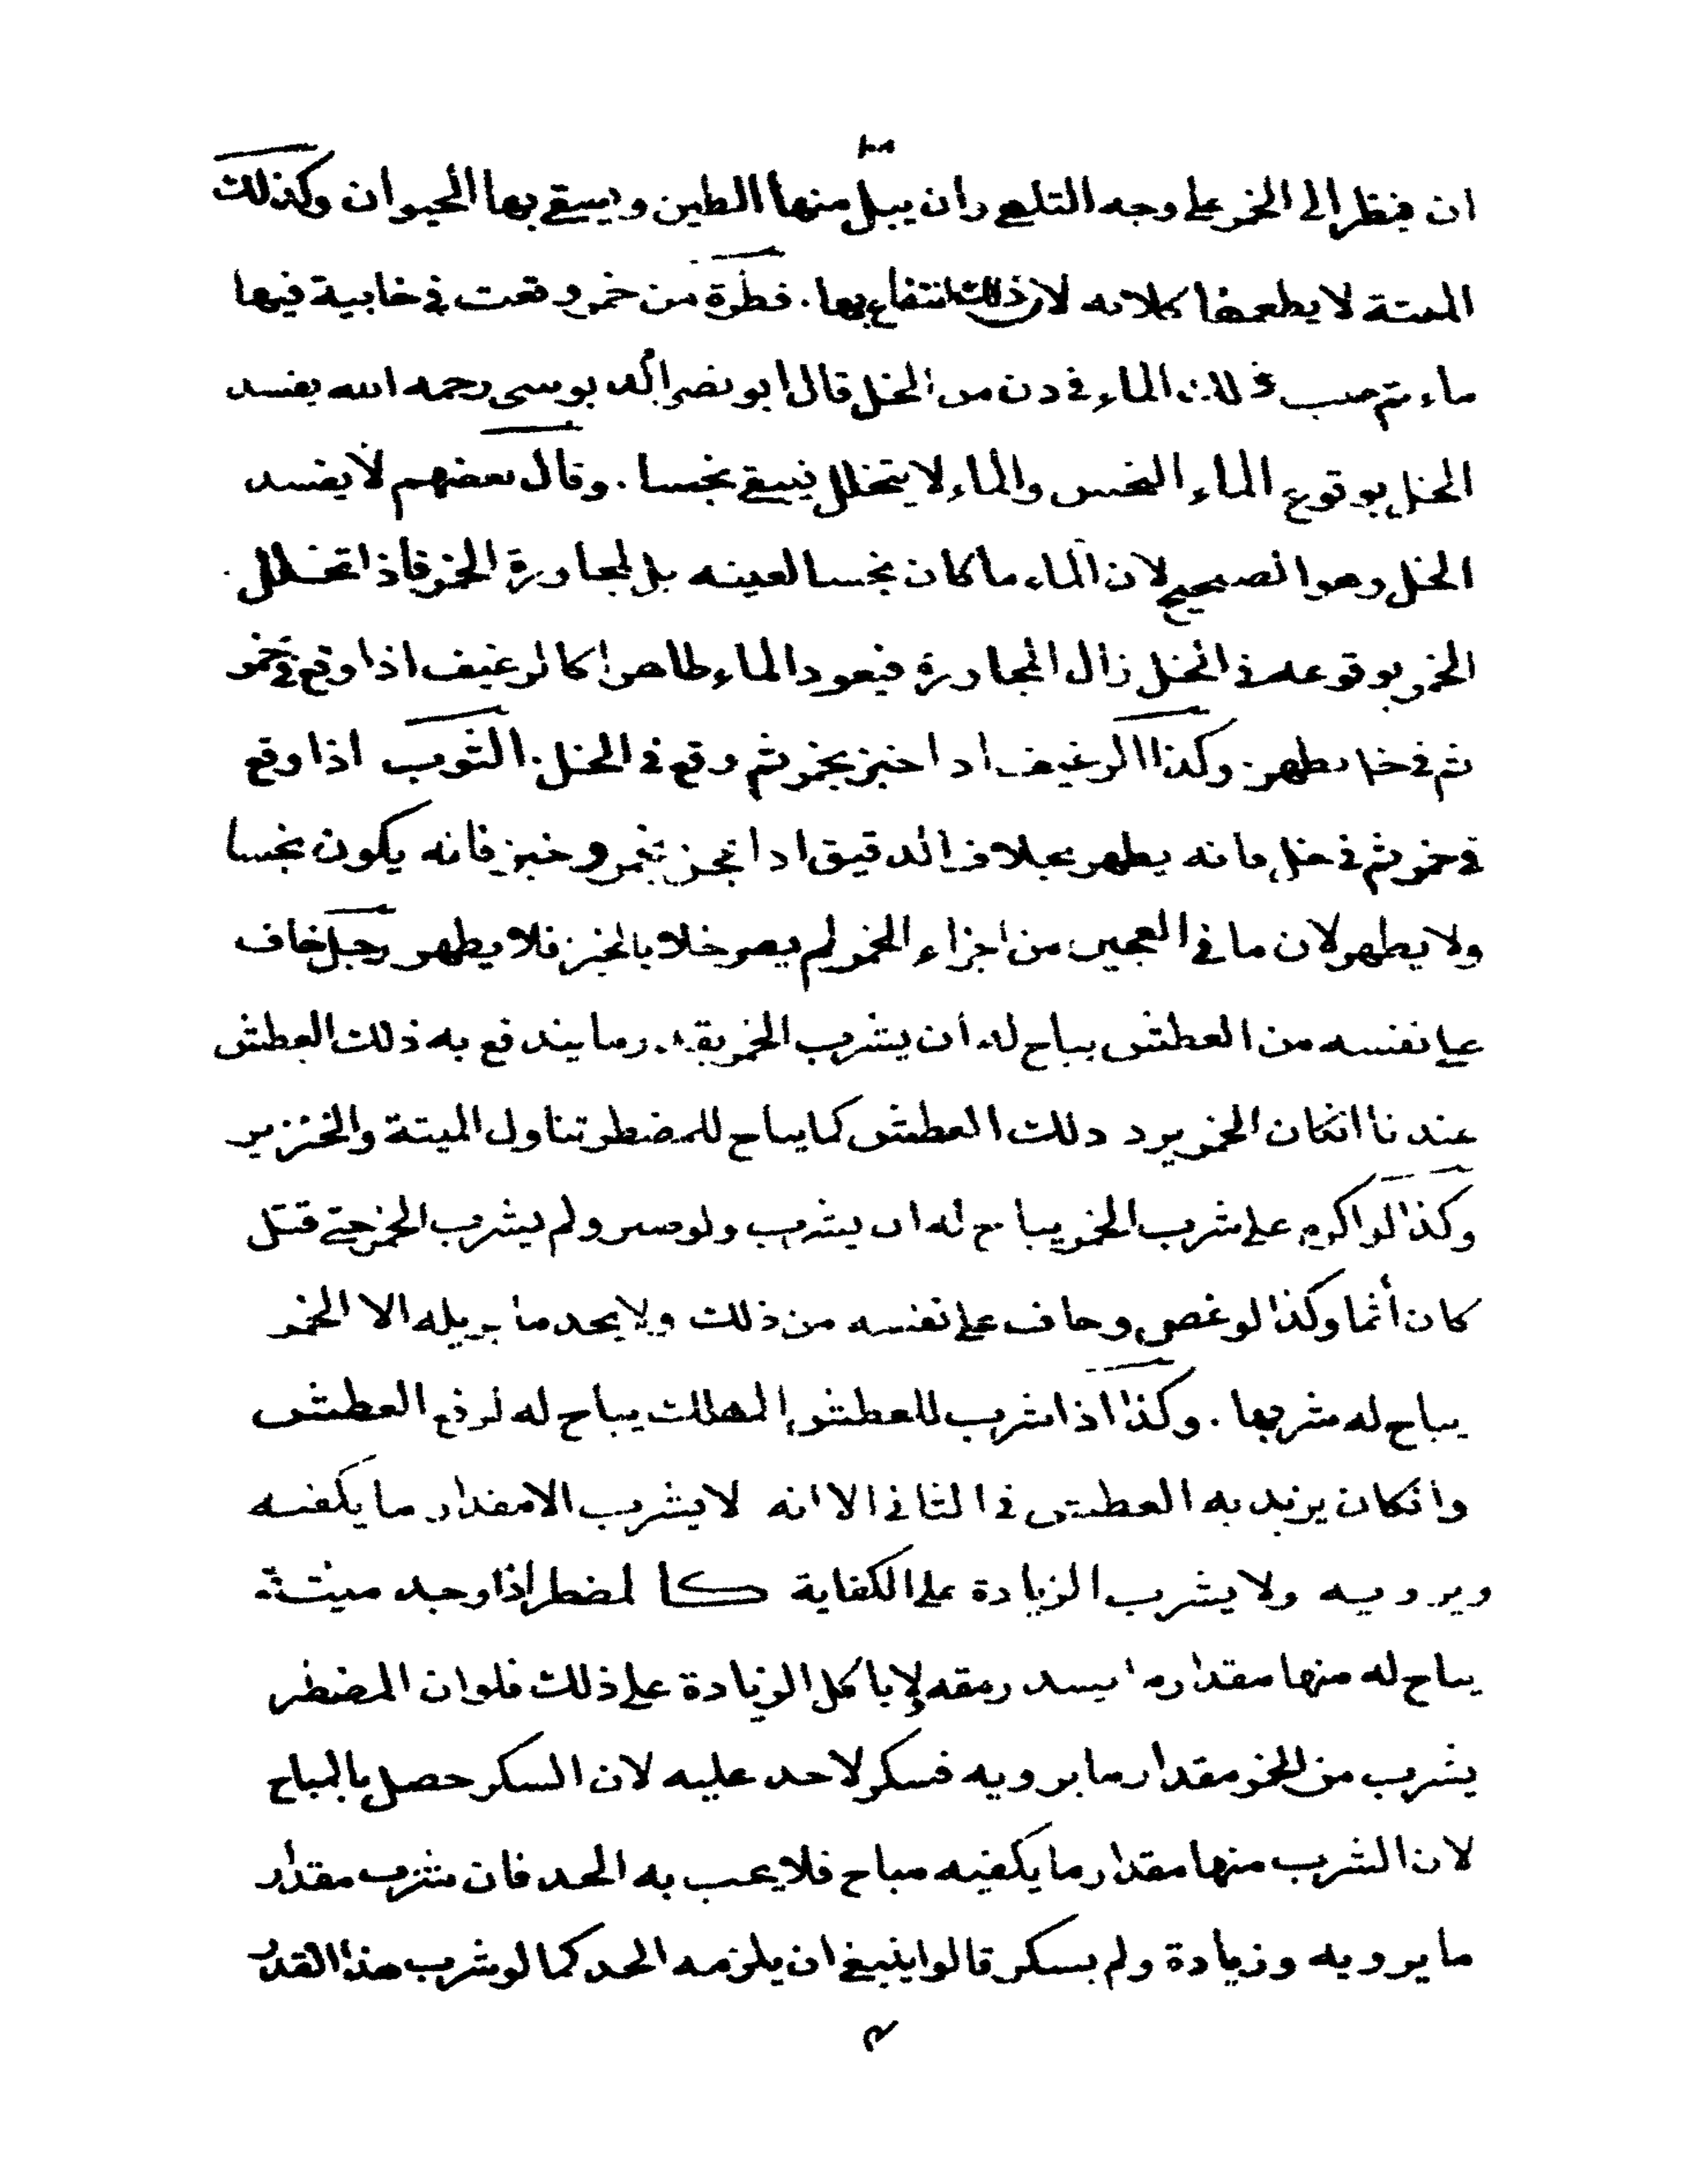 ان ينظر الى الخمر على وجه التلهى وان يبل منها الطين ويسقى بها الحيوان وكذلك
الميتة لا يطعمها كلابه لان ذلك انتفاع بها . قطرة من خمر وقعت فى خابية فيها
ماء ثم صب ذلك الماء فى دن من الخل قال ابو نصر الدبوسى رحمه الله يفسد
الخل بوقوع الماء النجس والماء لا يتخلل فيبقى نجسا . وقال بعضهم لا يفسد
الخل وهو الصحيح لان الماء ما كان نجسا لعينه بل لمجاورة الخمر فاذا تخلل
الخمر بوقوعه فى الخل زال المجاورة فيعود الماء طاهرا كالرغيف اذا وقع فى خمر
ثم فى خل يطهر وكذا الرغيف اذا خبز بخمر ثم وقع فى الخل . الثوب اذا وقع
فى خمر ثم فى خل فانه يطهر بخلاف الدقيق اذا عجن بخمر و خبز فانه يكون نجسا
ولا يطهر لان ما فى العجين من اجزاء الخمر لم يصر خلا بالخبز فلا يطهر رجل خاف
على نفسه من العطش يباح له أن يشرب الخمر بقدر ما يندفع به ذلك العطش
عندنا انكان الخمر يرد ذلك العطش كما يباح للمضطر تناول الميتة والخنزير
وكذا لو اكره على شرب الخمر يباح له ان يشرب ولو صبر ولم يشرب الخمر حتى قتل
كان أثما وكذا لو غص وخاف على نفسه من ذلك ولا يجد ما يزيله الا الخمر
يباح له شربها . وكذا اذا شرب للعطش المهلك يباح له لدفع العطش
وانكان يزيد به العطش فى الثانى الا انه لا يشرب الا مقدار ما يكفيه
ويرويه ولا يشرب الزيادة على الكفاية كالمضطر اذا وجد ميتة
يباح له منها مقدار ما يسد رمقه لا يأكل الزيادة على ذلك فلو ان المضطر
يشرب من الخمر مقدار ما يرويه فسكر لا حد عليه لان السكر حصل بالمباح
لان الشرب منها مقدار ما يكفيه مباح فلا يجب به الحد فان شرب مقدار
ما يرويه وزيادة ولم يسكر قالوا ينبغى ان يلزمه الحد كما لو شرب هذا القدر